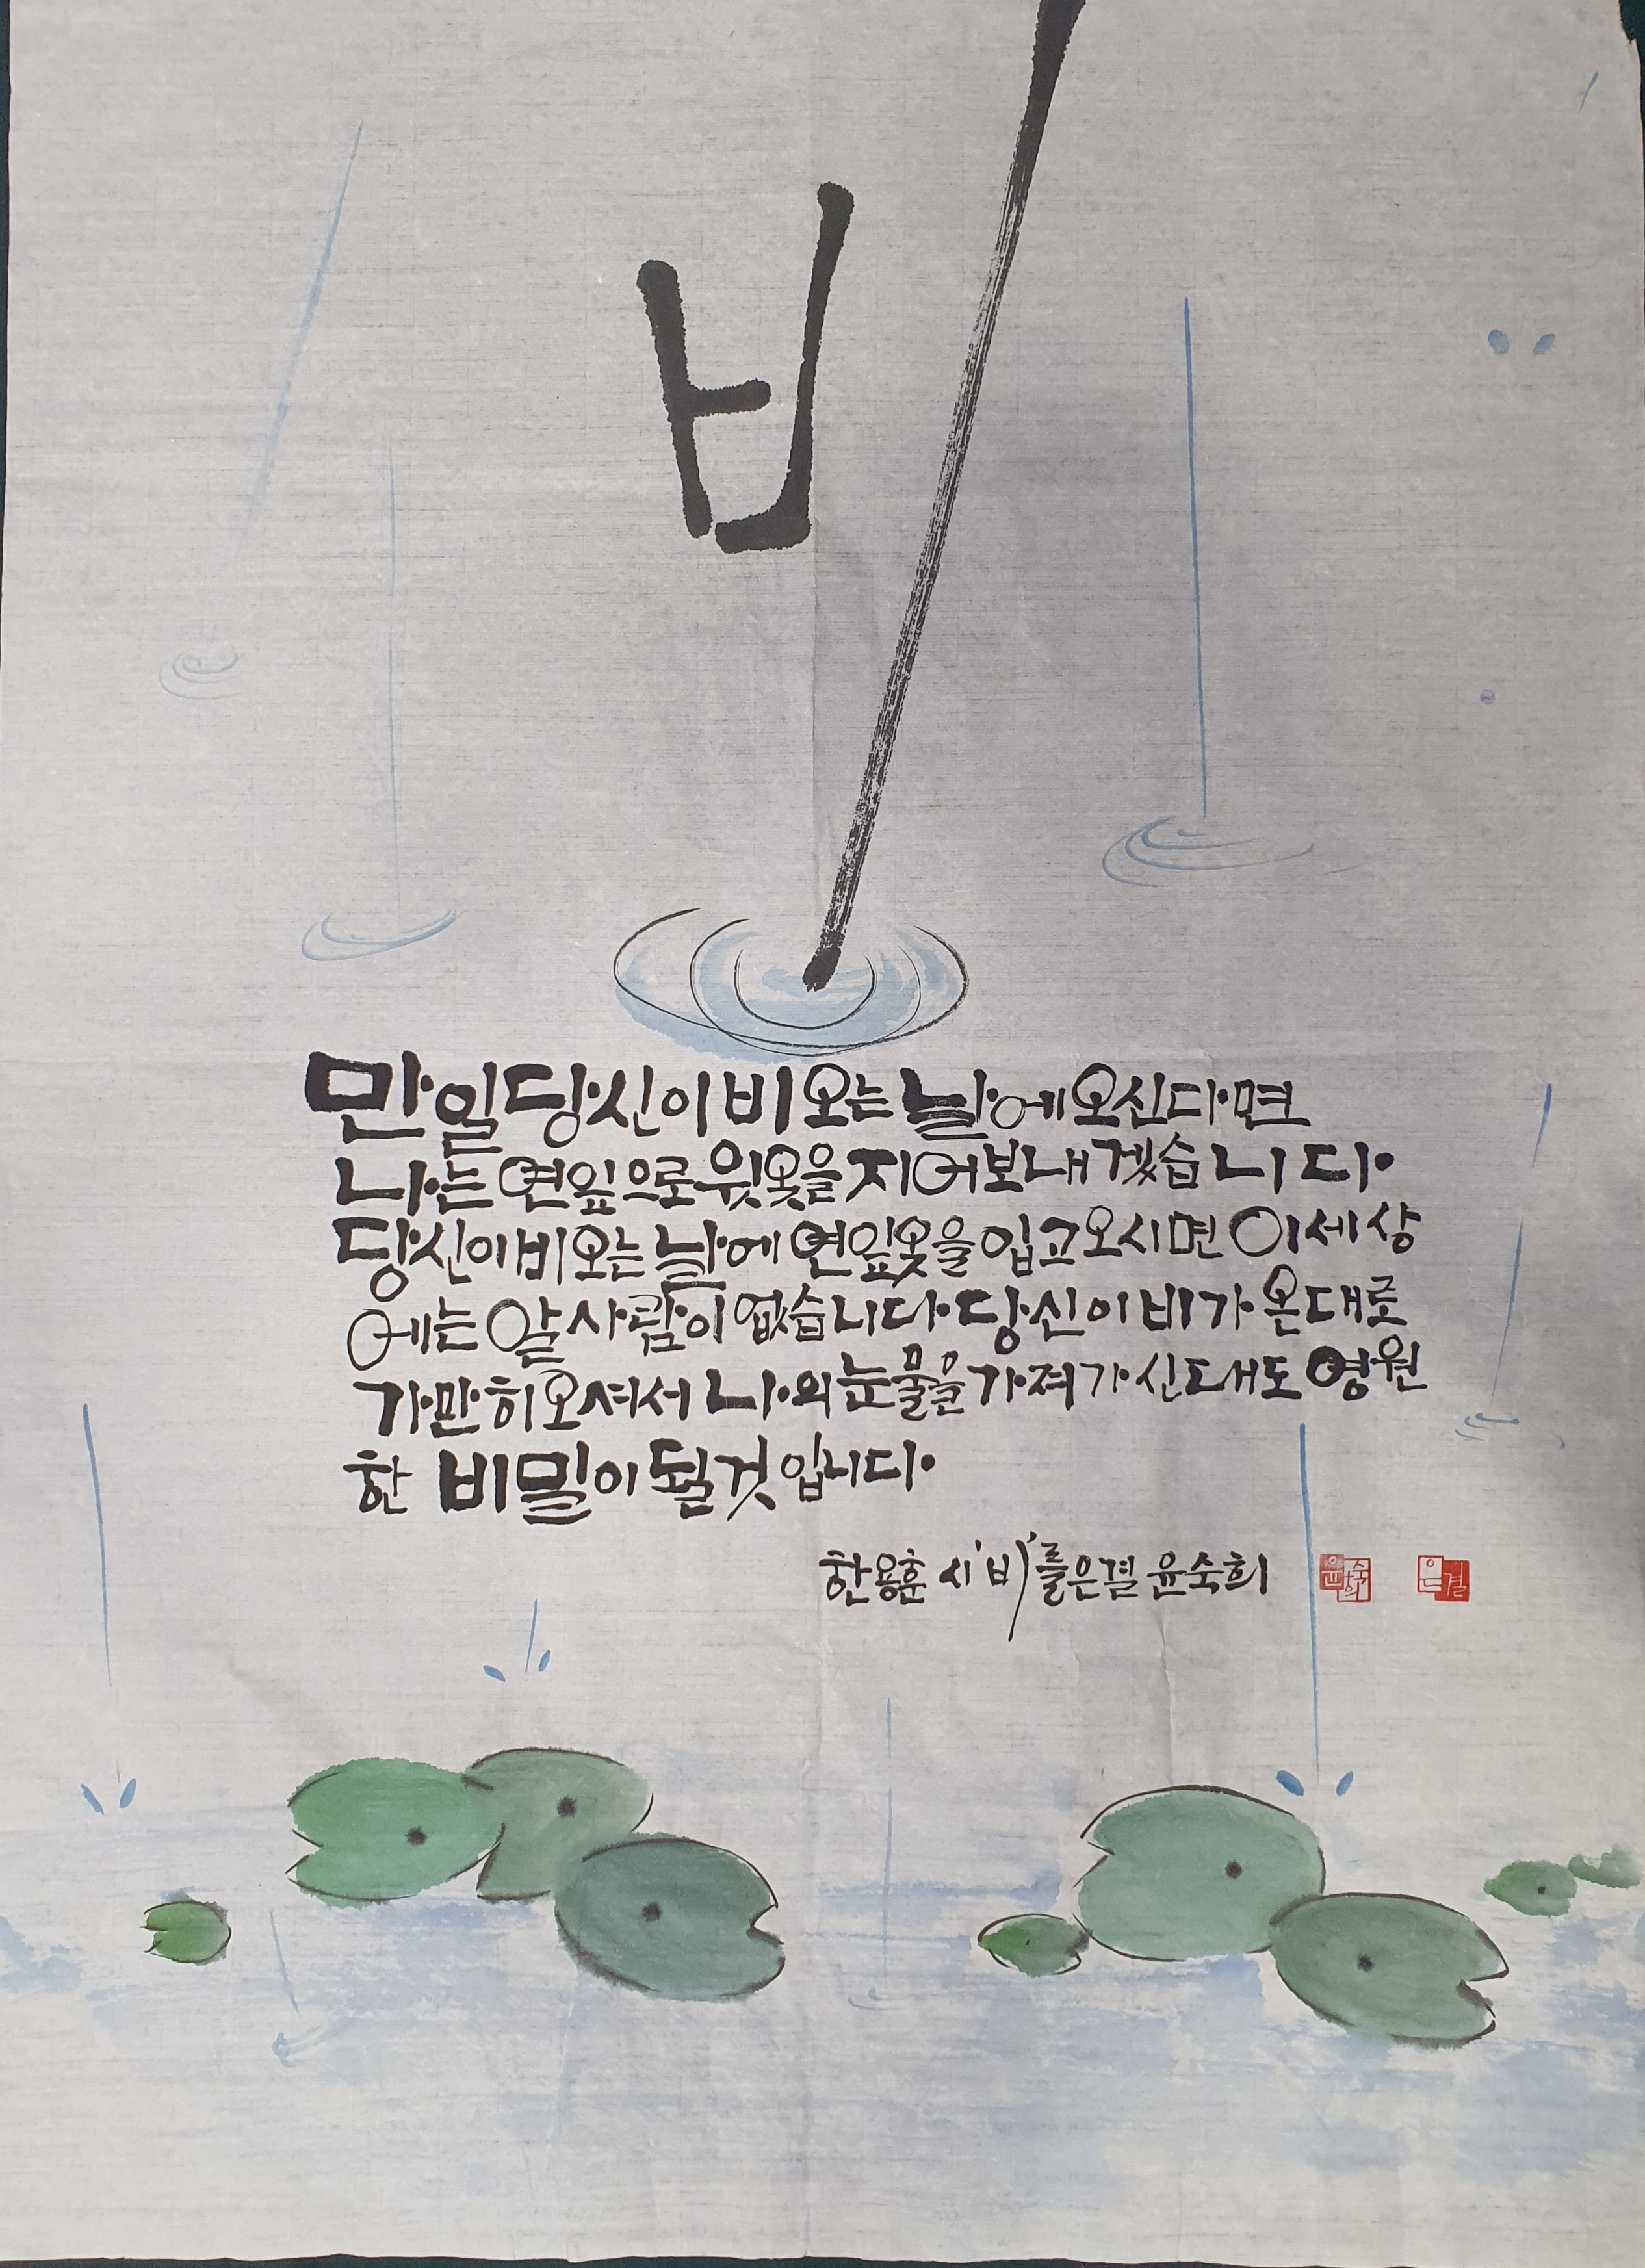 비
만일 당신이 비오는 날에 오신다면
나는 연잎으로 윗옷을 지어보내겠습니다.
당신이 비오는 날에 연잎옷을 입고오시면 이세상
에는 알 사람이 없습니다. 당신이 비가 온대로
가만히 오셔서 나의 눈물을 가져가신대도 영원
한 비밀이 될것입니다.
한용훈 시 '비'를 은결 윤숙희
윤숙희
은결